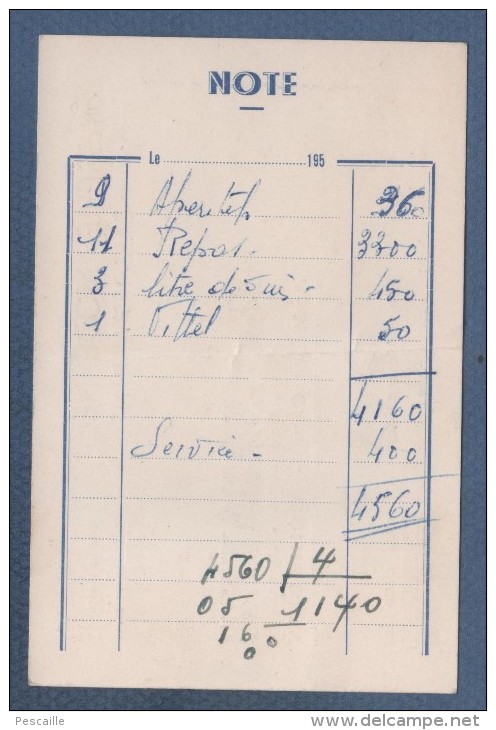 NOTE
Le 195
9 Aperitifs 360
11 Repas. 3300
3 litre de vin - 450
1 Vittel 50
4160
Service - 400
4560
4560 / 4
05 1140
16
00
Pescaille
http://www.delcampe.net